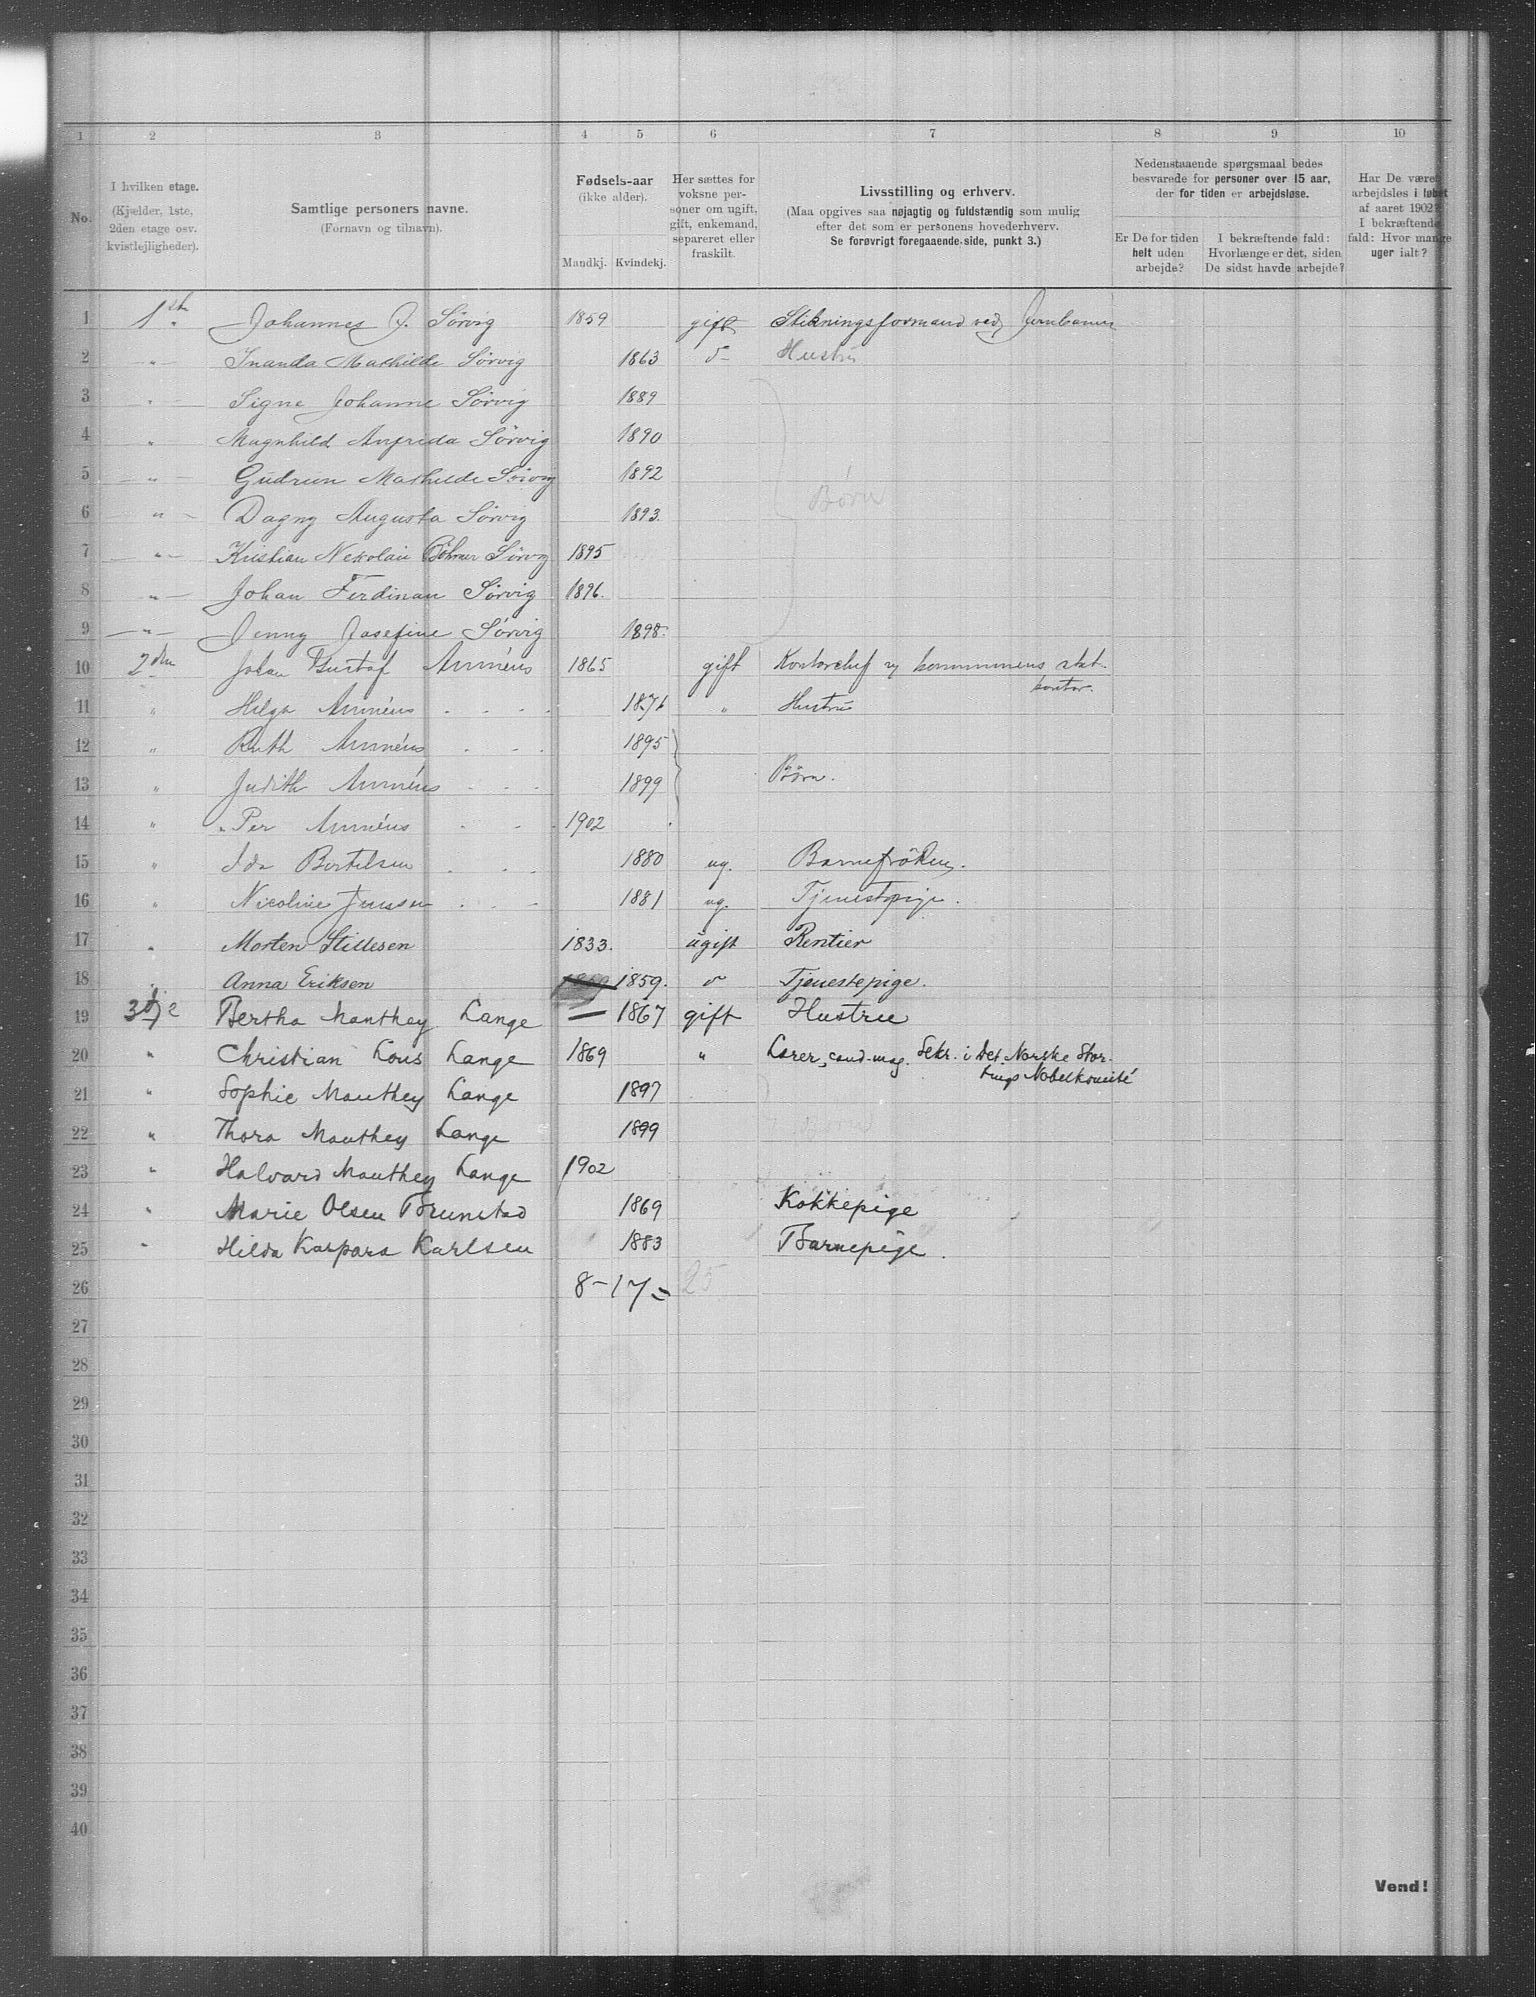 1 2 3 4 5 6 7 8 9 10
No.
I hvilken etage.
(Kjælder, 1ste,
2den etage osv.
kvistlejligheder).
Samtlige personers navne.
(Fornavn og tilnavn).
Fødsels-aar
(ikke alder).
Mandkj. Kvindekj.
Her sættes for
voksne per-
soner om ugift,
gift, enkemand,
separeret eller
fraskilt.
Livsstilling og erhverv.
(Maa opgives saa nøjagtig og fuldstændig som mulig
efter det som er personens hovederhverv.
Se forøvrigt foregaaende side, punkt 3.)
Nedenstaaende spørgsmaal bedes
besvarede for personer over 15 aar,
der for tiden er arbejdsløse.
Er De for tiden
helt uden
arbejde?
I bekræftende fald:
Hvorlænge er det, siden
De sidst havde arbejde?
Har De været
arbejdsløs i løbet
af aaret 1902?
I bekræftende
fald: Hvor mange
uger ialt?
1 1ste Johannes J. Sörvig 1859 gift Stikningsformand ved Jernbanen
2 " Inanda Mathilde Sörvig 1863 d- Hustru
3 " Signe Johanne Sörvig 1889
4 " Magnhild Anfrida Sörvig 1890
5 " Gudrun Mathilde Sörvig 1892
6 " Dagny Augusta Sörvig 1893. Børn
7 " Kristian Nekolai Böhmer Sörvig 1895
8 " Johan Ferdinan Sörvig 1896.
9 " Jenny Josefine Sörvig 1898.
10 2den Johan Gustaf Amnéus 1865 gift Kontorchef v kommunens stat.
kontor.
11 " Helga Amnéus 1871 " Hustru
12 " Ruth Amnéus 1895
13 " Judith Amnéus 1899 Børn.
14 " Per Amnéus 1902
15 " Ida Bertelsen 1880 ug. Barnefröken.
16 " Nicoline Jenssen 1881 ug. Tjenestepige.
17 " Morten Stillesen 1833. ugift Rentier
18 " Anna Eriksen 1859. d Tjenestepige.
19 3dje Bertha Manthey Lange — 1867 gift Hustru
20 " Christian Lous Lange 1869 " Lærer, cand-mag. Sekr. i Det Norske Stor-
tings Nobelkomité
21 " Sophie Manthey Lange 1897
22 " Thora Manthey Lange 1899
23 " Halvard Manthey Lange 1902
24 " Marie Olsen Brunstad 1869 Kokkepige
25 " Hilda Kaspara Karlsen 1883 Barnepige.
26 8-17= 25
27
28
29
30
31
32
33
34
35
36
37
38
39
40
Vend!